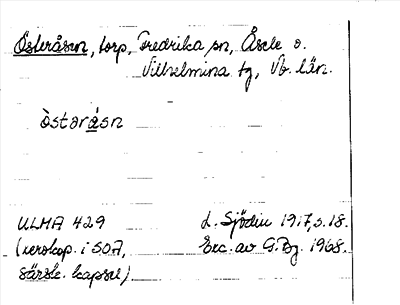 Österåsen, torp, Fredrika sn, Åsele o.
Vilhelmina tg, Vb. län.
òstaråsn
ULMA 429 L. Sjödin 1917, s. 18.
(xerokop. i SOA, Exc. av G. Bg. 1968.
särsk. kapsel)